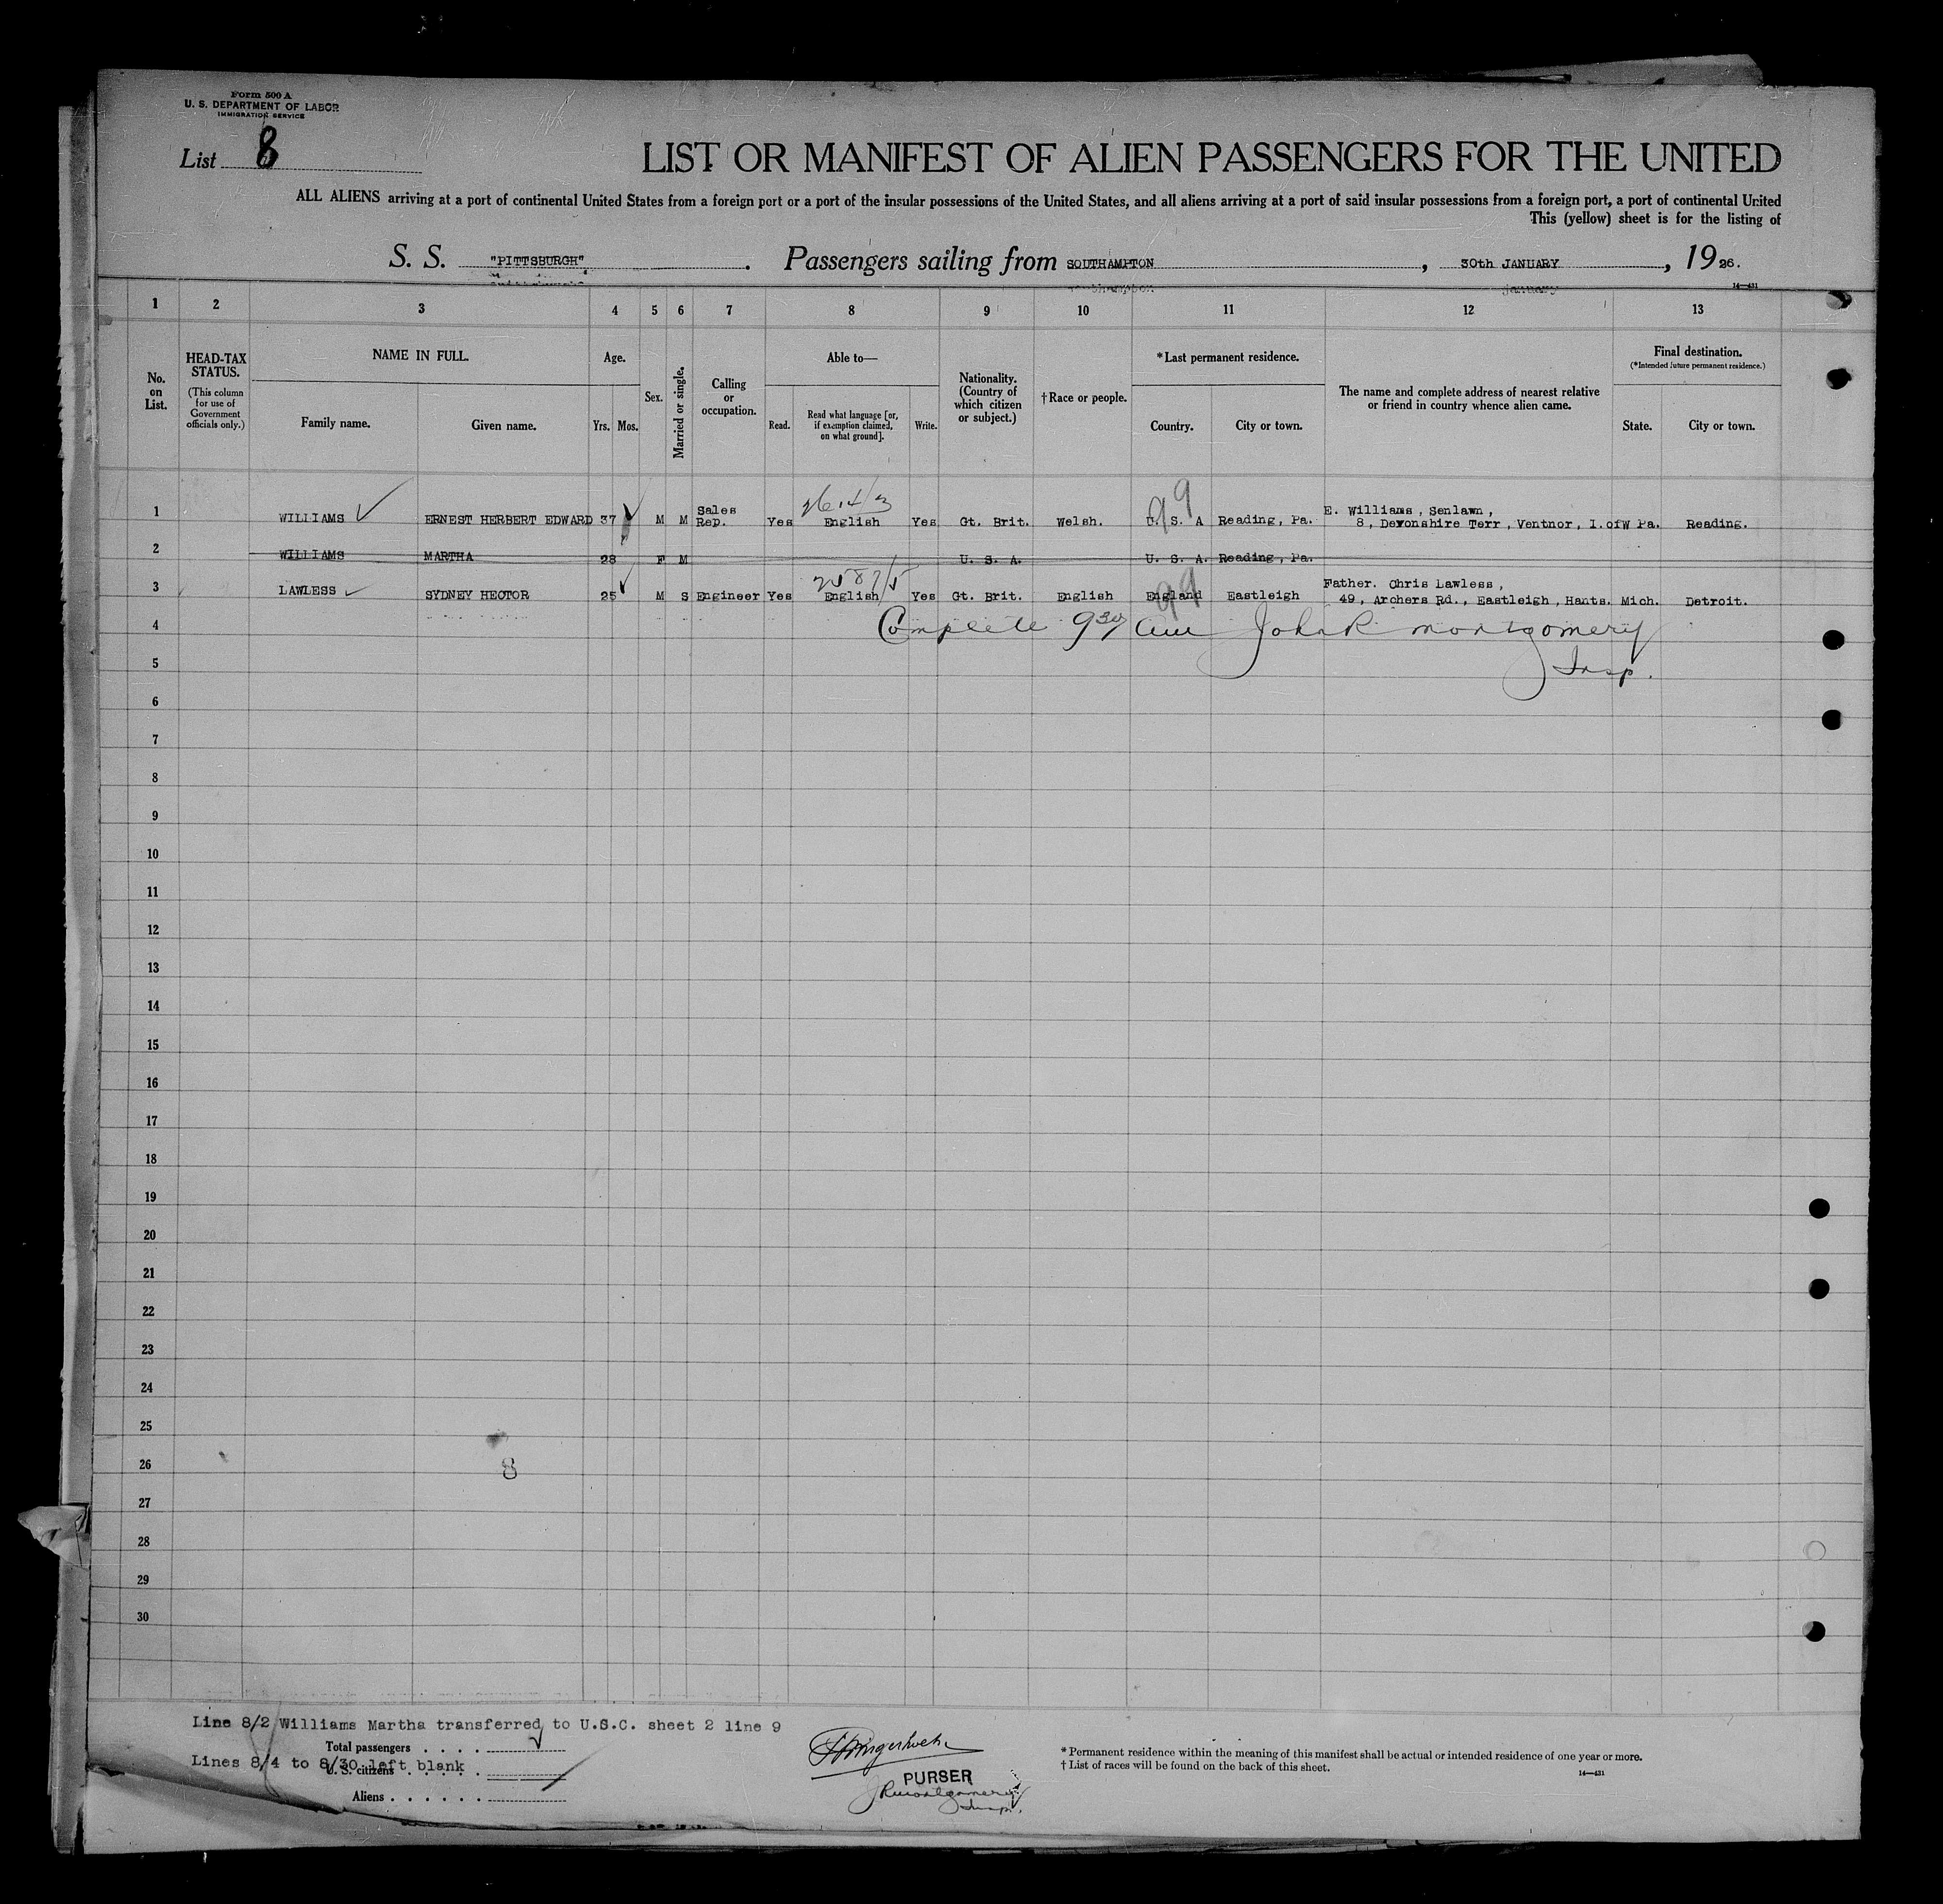 Form 500 A
U. S. DEPARTMENT OF LABOR
IMMIGRATION SERVICE
List 8
LIST OR MANIFEST OF ALIEN PASSENGERS FOR THE UNITED
ALL ALIENS arriving at a port of continental United States from a foreign port or a port of the insular possessions of the United States, and all aliens arriving at a port of said insular possessions from a foreign port, a port of continental United
This (yellow) sheet is for the listing of
S. S. "PITTSBURGH". Passengers sailing from SOUTHAMPTON, 30th JANUARY, 1926.
14—431
1 2 3 4 5 6 7 8 9 10 11 12 13
No. on List.
HEAD-TAX STATUS.
(This column for use of Government officials only.)
NAME IN FULL.
Family name. Given name.
Age.
Yrs. Mos.
Sex.
Married or single.
Calling or occupation.
Able to—
Read. Read what language [or, if exemption claimed, on what ground]. Write.
Nationality. (Country of which citizen or subject.)
†Race or people.
*Last permanent residence.
Country. City or town.
The name and complete address of nearest relative or friend in country whence alien came.
Final destination.
(*Intended future permanent residence.)
State. City or town.
1 WILLIAMS ERNEST HERBERT EDWARD 37 M M Sales Rep. Yes English Yes Gt. Brit. Welsh. U. S. A Reading, Pa. E. Williams, Senlawn, 8, Devonshire Terr, Ventnor, I.ofW Pa. Reading.
99
2 WILLIAMS MARTHA 28 F M U. S. A. U. S. A. Reading, Pa.
3 LAWLESS SYDNEY HECTOR 25 M S Engineer Yes English Yes Gt. Brit. English England Eastleigh Father. Chris Lawless, 49, Archers Rd., Eastleigh, Hants. Mich. Detroit.
99
4 Complete 9 30 am John R Montgomery
5 Insp.
6
7
8
9
10
11
12
13
14
15
16
17
18
19
20
21
22
23
24
25
26 8
27
28
29
30
Line 8/2 Williams Martha transferred to U.S.C. sheet 2 line 9
Total passengers . . . .
Lines 8/4 to 8/30 left blank
U. S. citizens . . . . .
Aliens . . . . . .
PURSER
JR Montgomery
Insp.
* Permanent residence within the meaning of this manifest shall be actual or intended residence of one year or more.
† List of races will be found on the back of this sheet.
14—431